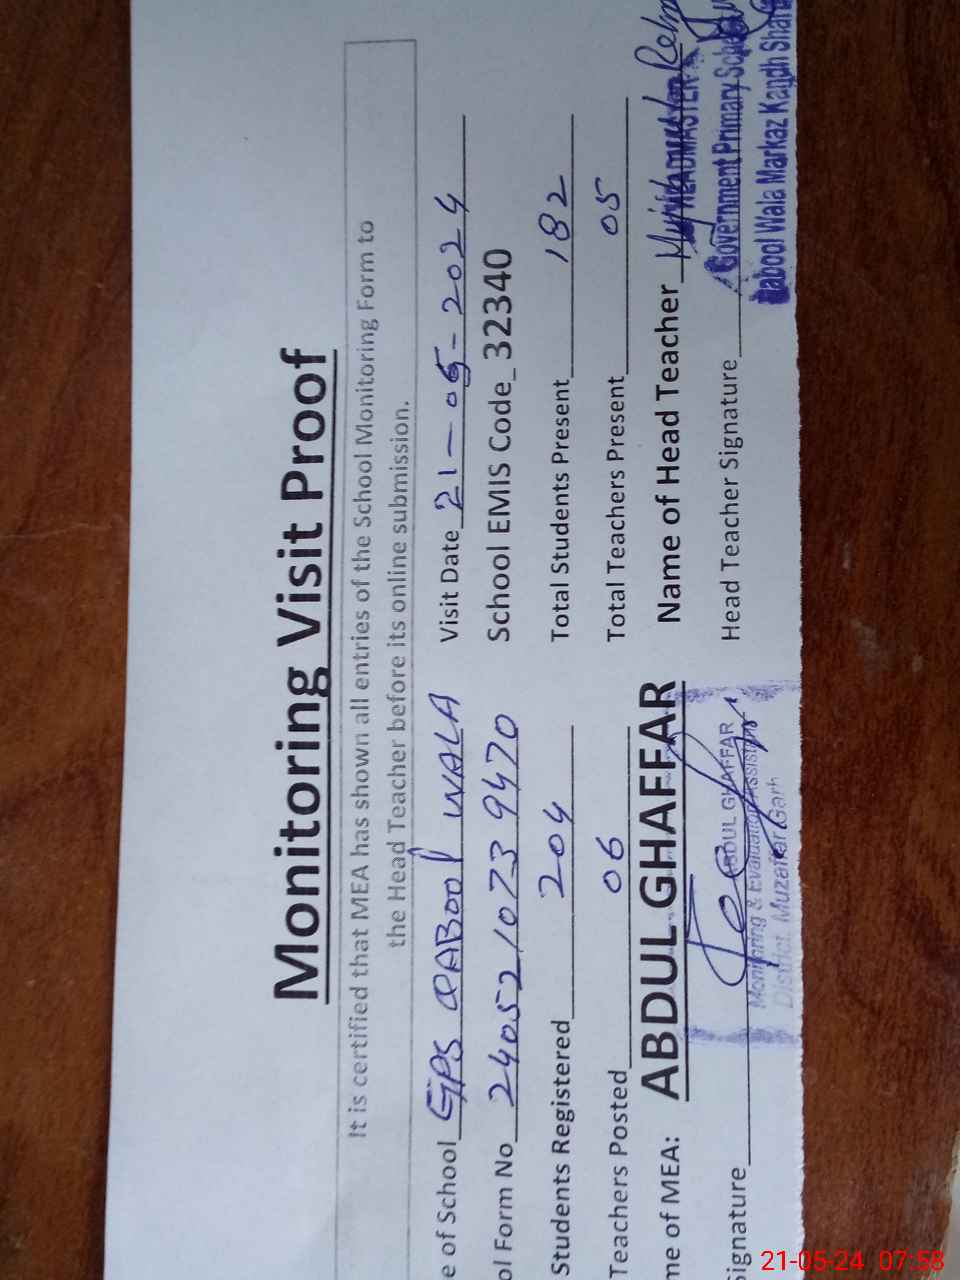 Monitoring Visit Proof
It is certified that MEA has shown all entries of the School Monitoring Form to
the Head Teacher before its online submission.
e of School GPS QABool WALA Visit Date 21-05-2024
ol Form No 2405210739470 School EMIS Code 32340
Students Registered 204 Total Students Present 182
Teachers Posted 06 Total Teachers Present 05
me of MEA: ABDUL GHAFFAR Name of Head Teacher
HEADMASTER
ignature Head Teacher Signature
ABDUL GHAFFAR
Monitoring & Evaluation Assistant
District Muzaffar Garh
Government Primary School
Qabool Wala Markaz Kandh Shar
21-05-24 07:58